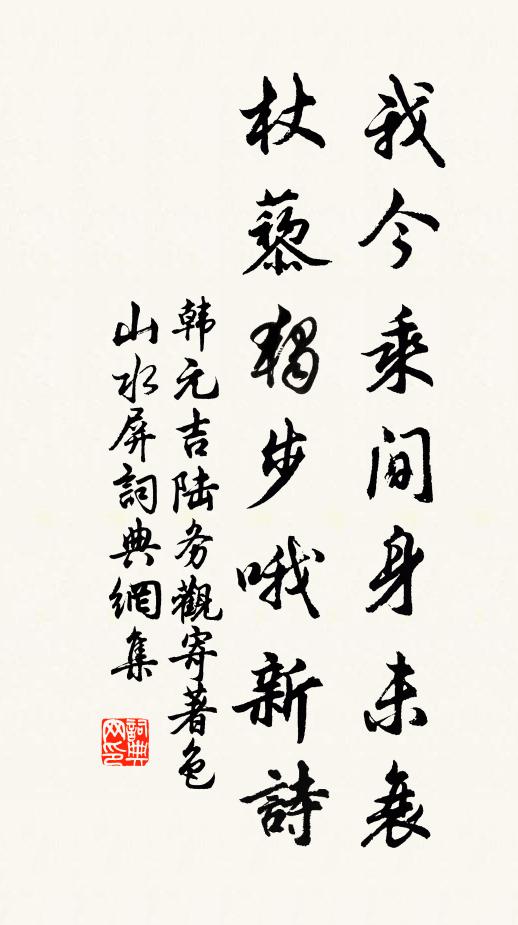 我今乘间身未衰
杖藜独步哦新詩
韩元吉陆务觀寄著色
山水屏詞典網集
詞典網印